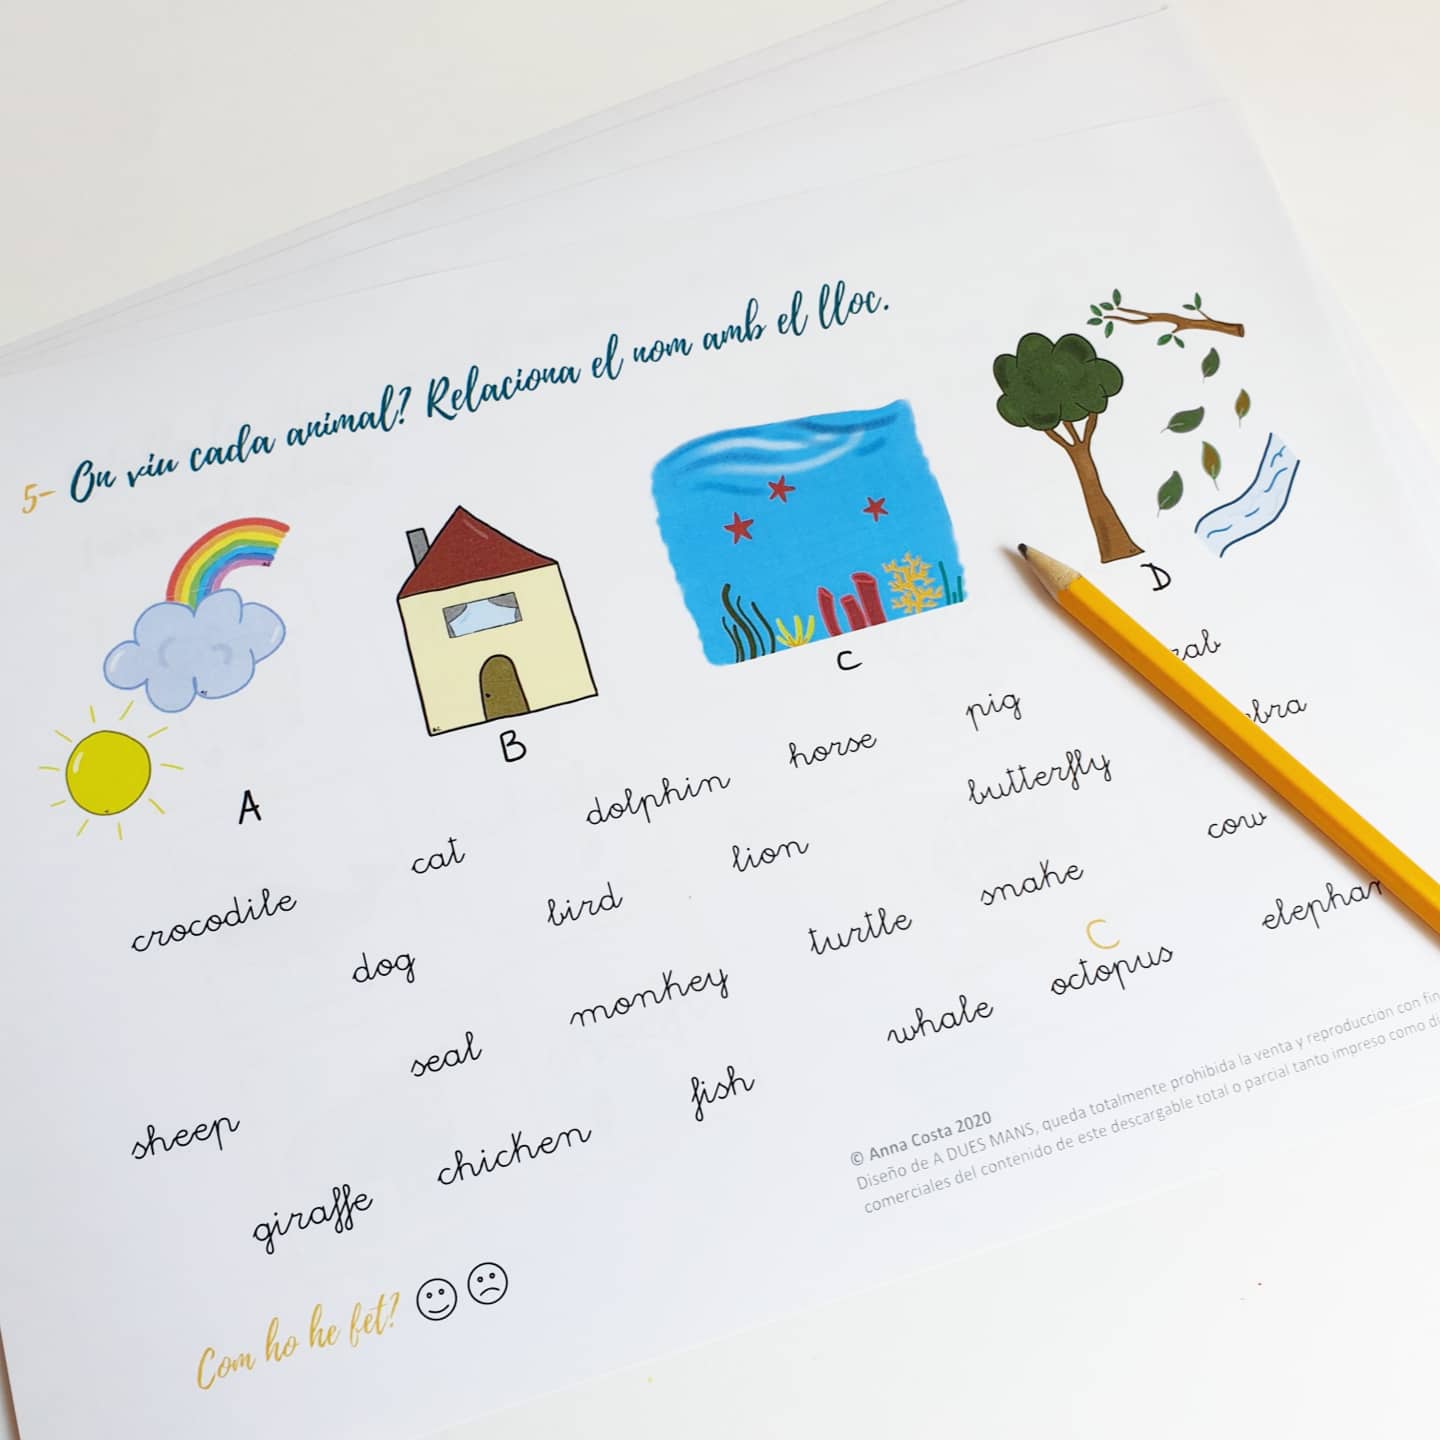 5- On viu cada animal? Relaciona el nom amb el lloc.
A
B
C
D
crocodile
cat
dolphin
horse
pig
dog
bird
lion
butterfly
cow
seal
monkey
turtle
snake
C
octopus
sheep
giraffe
chicken
fish
whale
© Anna Costa 2020
Diseño de A DUES MANS, queda totalmente prohibida la venta y reproducción con
comerciales del contenido de este descargable total o parcial tanto impreso como
Com ho he fet?